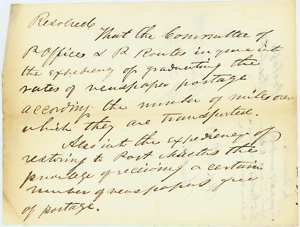 Resolved
That the Committee of
P Offices & P Routes inquire int
the expediency of graduating the
rates of newspaper postage
according the number of miles over
which they are transported.
Also into the expediency of
restoring to Post Masters the
privilege of receiving a certain
number of newspapers free
of postage.